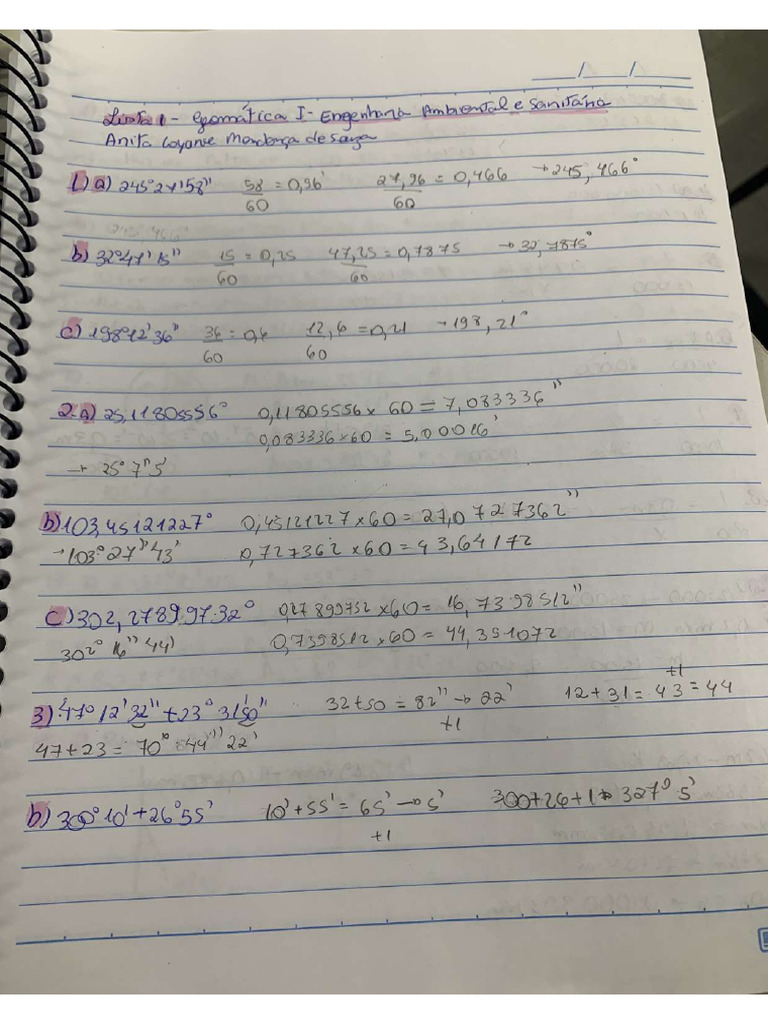 ___/___/___
Lista 1 - Geomática I - Engenharia Ambiental e Sanitária
Anita Mendonça de
1) a) 245°27'58'' 58/60 = 0,96' 27,96/60 = 0,466 → 245,466°
b) 32°47'15'' 15/60 = 0,25 47,25/60 = 0,7875 → 32,7875°
c) 198°12'36'' 36/60 = 0,6 12,6/60 = 0,21 → 198,21°
2-a) 25,11805556° 0,11805556 x 60 = 7,083336''
0,083336 x 60 = 5,00016'
→ 25° 7'' 5'
b) 103,45121227° 0,45121227 x 60 = 27,0727362''
→ 103° 27'' 43' 0,727362 x 60 = 43,64172
c) 302,2789.97.32° 0,27899752 x 60 = 16,7398512''
302° 16'' 44' 0,7398512 x 60 = 44,391072
3) 47° 12' 32'' + 23° 31' 50'' 32 + 50 = 82'' → 22' +1 12 + 31 = 43 +1 = 44
47 + 23 = 70° 44'' 22'
b) 300° 10' + 26° 55' 10' + 55' = 65' → 5' +1 300 + 26 + 1 → 327° 5'